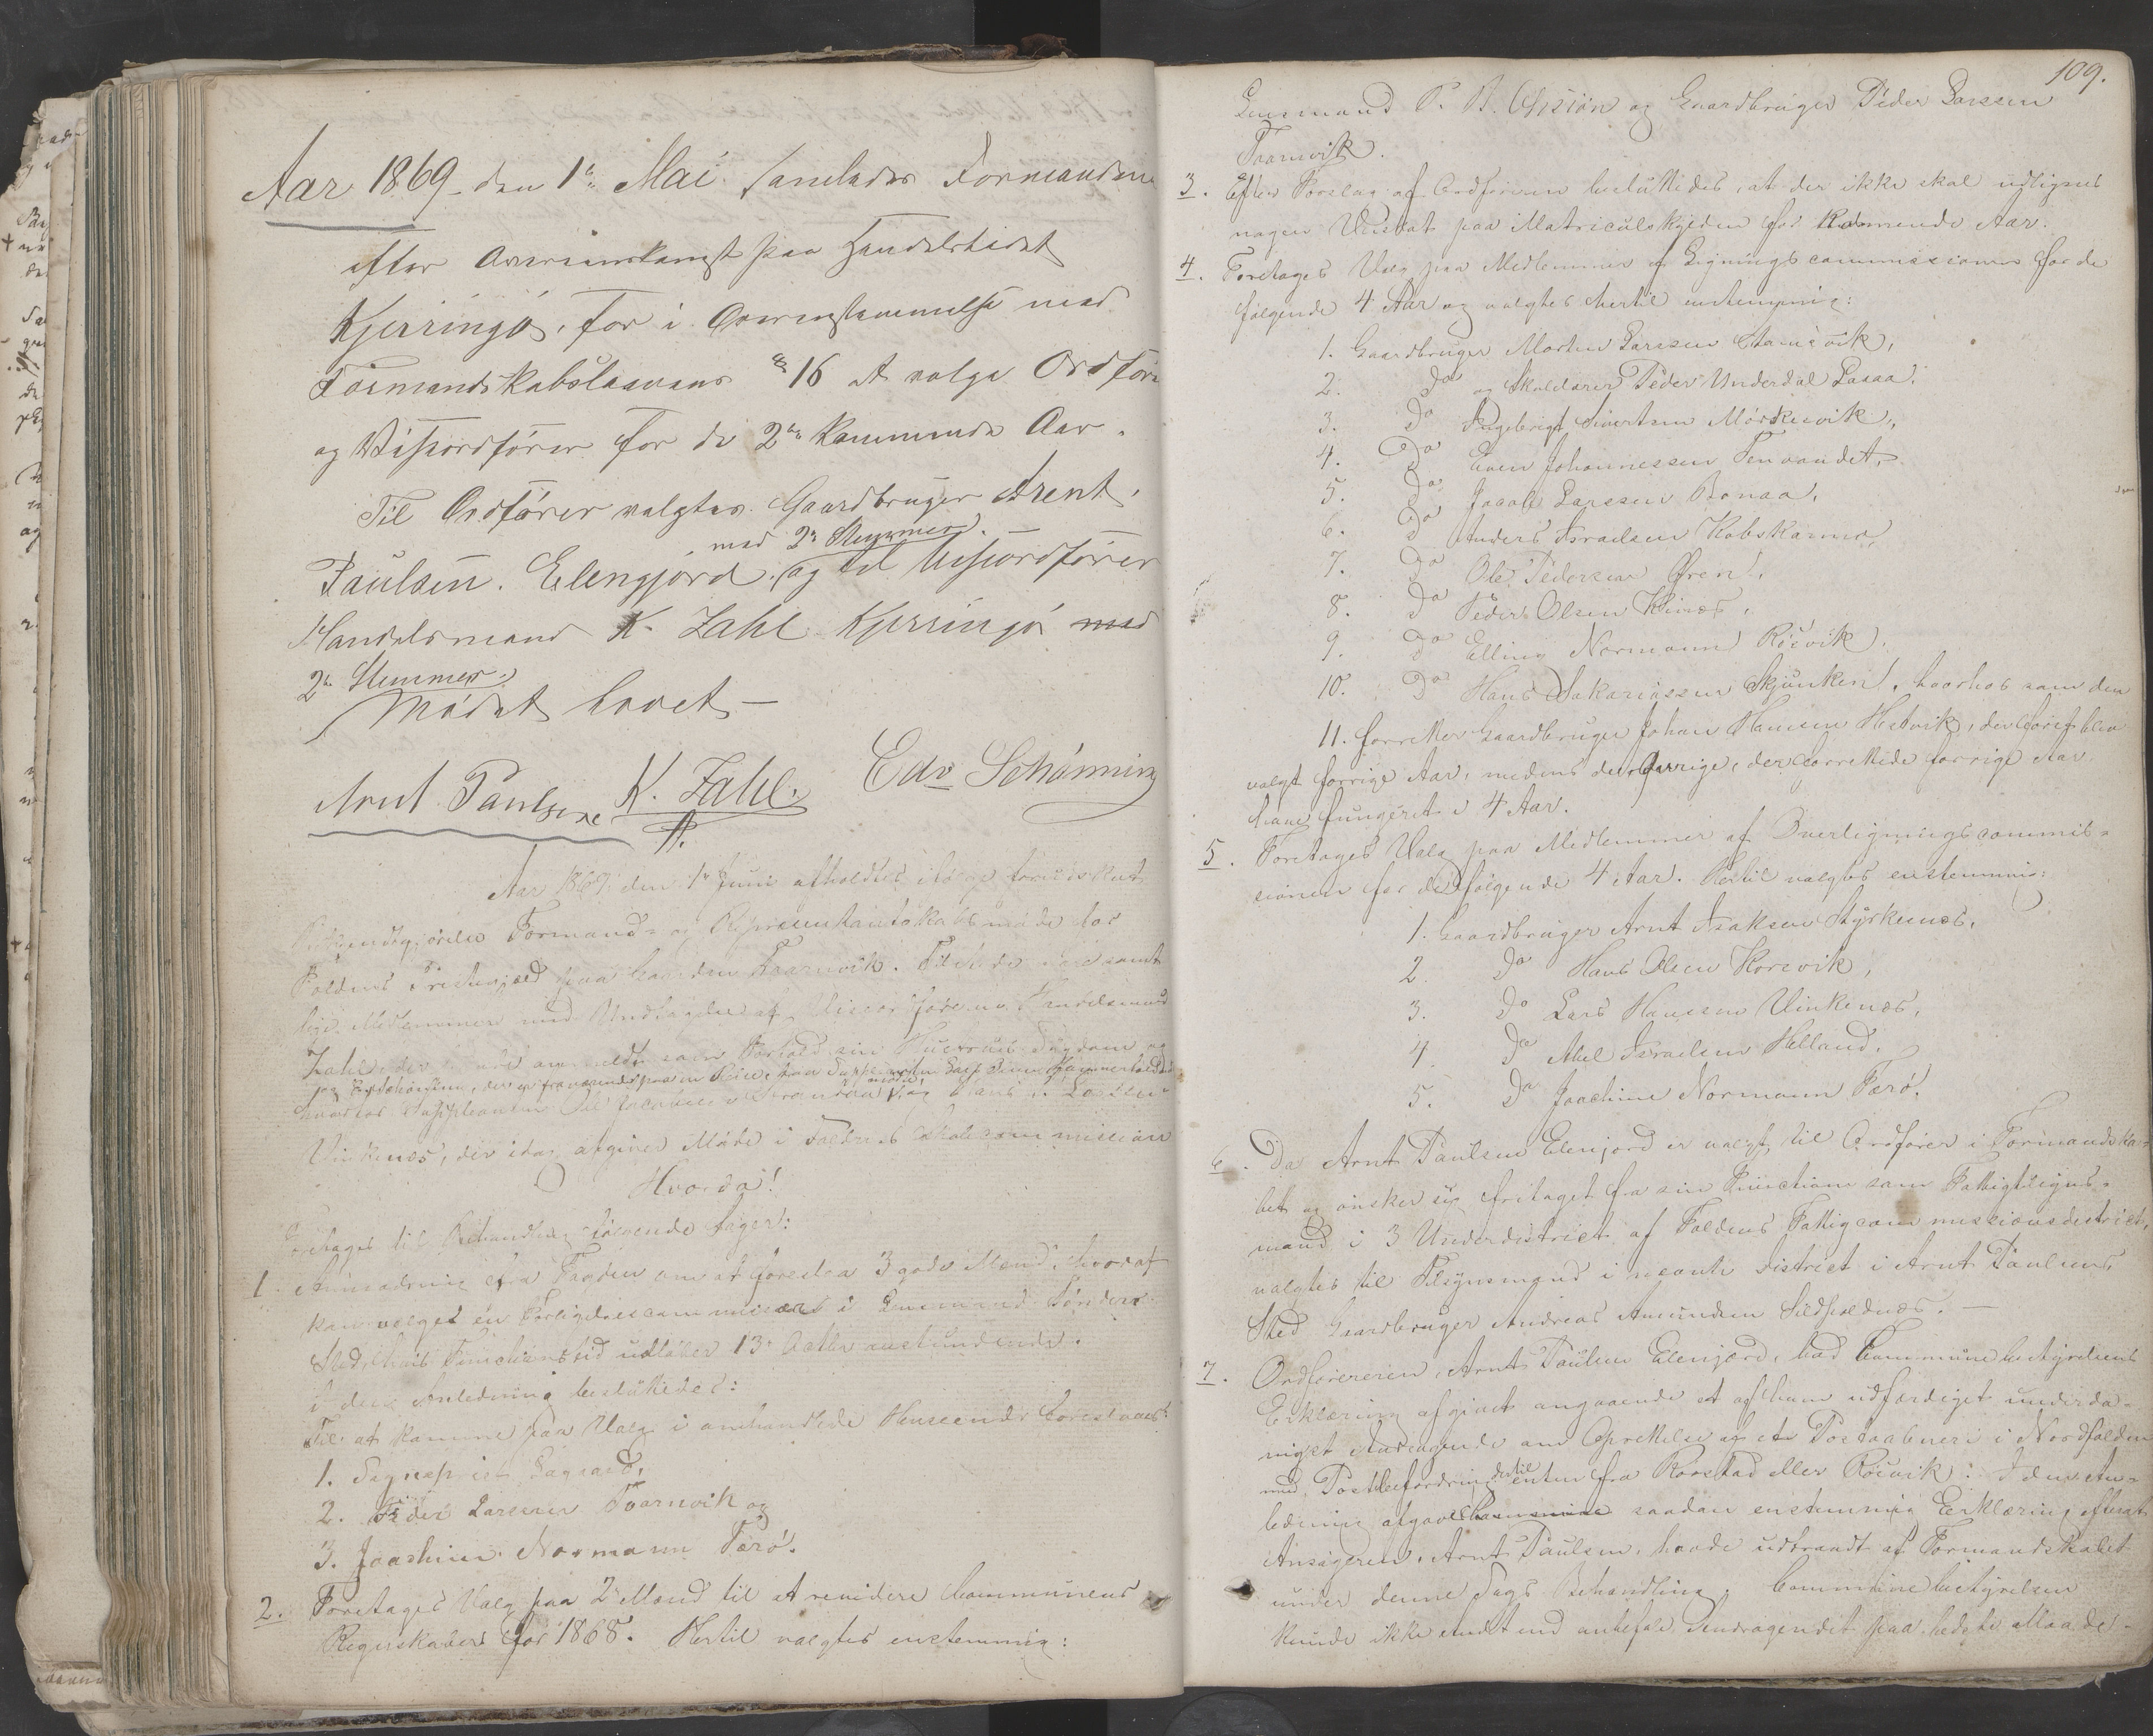 Aar 1869 den 1te Mai samledes Formændene
efter Overeenskomst paa Handelstedet
Kjerringö, for i Overensstemmelse med
Formandskabslovens § 16 at valge Ordförer
og Viseordförer for de 2de kommende Aar.
Til Ordförer valgtes Gaardbruger Arent
med 2de Stemmer
Paulsen Elengjord, og til Viseordförer
Handelsmand K. Zahl Kjerringö med
2de Stemmer.
Mödet hævet
Arnt Paulsen K. Zahl. Edv Schönning
Aar 1869 den 1te Juni afholdtes ifölge foreskreven
Bekjendtgjörelse Formand- og Repræsentantskabsmöde for
Foldens Prestegjæld paa Gaarden Taarnvik. Tilstede vare samt-
lige Medlemmer med Undtagelse af Viceordföreren Handelsmand
Zahl, der havde anmeldt som Forfald sin Hustrues Sygdom og
Vinkenæs, der idag afgiver Möde i Foldens Skolecommission
Hvorda!
Foretages til Behandling fölgende Sager:
1. Anmodning fra Fogden om at foreslaa 3 gode Mænd, hvoraf
kan vælges en Forligelsescommissær i Lensmand
Sted, hvis Functionstid udlöber 13de October nestkommende.
I den Anledning besluttedes:
Til at komme paa Valg i omhandlede Henseende foreslaaes:
1. Lagaard,
2. Peder Larssen Taarnvik og
3. Joachim Normann Færö.
2. Foretages Valg paa 2de Mænd til at revidere Communens
Regnskaber for 1868. Hertil valgtes enstemmig:
109.
Lensmand P. B. og Gaardbruger Peder Larssen
Taarnvik.
3. Efter Forslag af Ordföreren besluttedes, at der ikke skal udlignes
nogen Udskat paa Matriculskylden for kommende Aar.
4. Foretages Valg paa Medlemmer af Ligningscommissionen for de
fölgende 4 Aar og valgtes hertil enstemmig:
1. Gaardbruger Morten Larssen Stamsvik,
2. Do og Skolelærer Peder Underdal Laaaa,
3. Do Ingebrigt Sivertsen Mörkesvik,
4. Do Even Johannessen Tenvandet,
5. Do Jacob Larssen Bonaa,
6. Do Anders Israelsen Kobskarmo,
7. Do Ole Pedersen Ören,
8. Do Peder Olsen Kinæs,
9. Do Elling Normann Rösvik,
10. Do Hans Sakariassen Skjunken, hvorhos som den
11. forretter Gaardbruger Johan Hansen Hestvik, der blev
valgt forrige Aar, medens de övrige, der forrettede forrige Aar
have fungeret i 4 Aar.
5. Foretages Valg paa Medlemmer af Overligningscommis-
sionen for de fölgende 4 Aar. Hertil valgtes enstemmig:
1. Gaardbruger Arnt Isaksen Styrkesnæs,
2. Do Hans Olsen Korsvik,
3. Do Lars Hanssen Vinkenæs,
4. Do Abel Israelsen Helland,
5. Do Joachim Normann Færö.
6. Da Arnt Paulsen Elenjord er valgt til Ordförer i Formandska-
bet og önsker sig fritaget fra sin Function som Fattigtilsyns-
mand i 3 Underdistrict af Foldens Fattigcommissionsdistrict,
valgtes til Tilsynsmand i nævnte District i Arnt Paulsens
Sted Gaardbruger Andreas Amundsen Sildhopnæs.
7. Ordföreren, Arnt Paulsen Elenjord, bad Communebestyrelsens
Erklæring afgivet angaaende et af ham udfærdiget underda-
nigst Andragende om Oprettelse af et Postaabneri i Nordfolden
med Postbefordring dertil enten fra Rorstad eller Rösvik. I den An-
ledning afgaves Communens saadan enstemmig Erklæring efterat
Ansögeren, Arnt Paulsen, havde udtraadt af Formandskabet
under denne Sags Behandling. Communebestyrelsen
kunde ikke andet end anbefale Andragendet paa bedste Maade.